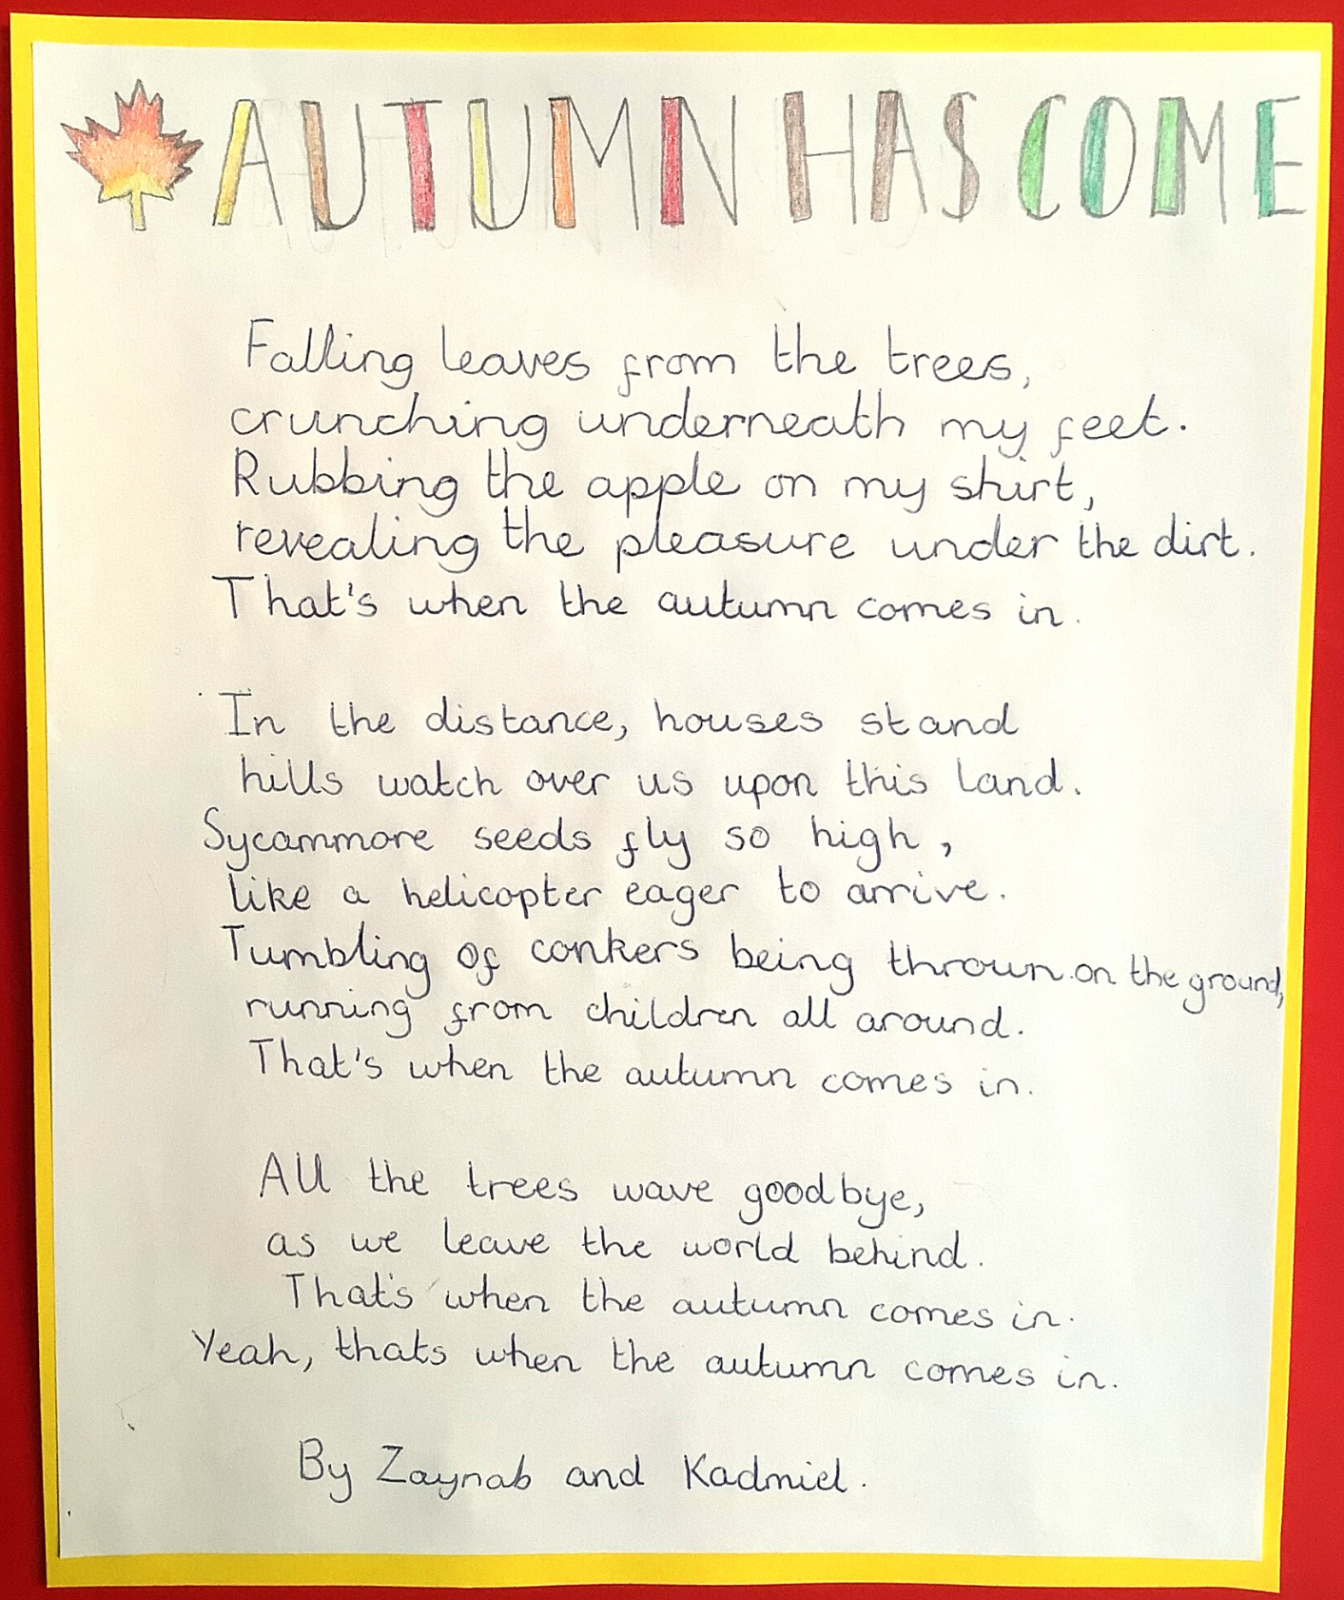 AUTUMN HAS COME
Falling leaves from the trees,
crunching underneath my feet.
Rubbing the apple on my shirt,
revealing the pleasure under the dirt.
That's when the autumn comes in.
In the distance, houses stand
hills watch over us upon this land.
Sycammore seeds fly so high,
like a helicopter eager to arrive.
Tumbling of conkers being thrown on the ground,
running from children all around.
That's when the autumn comes in.
All the trees wave goodbye,
as we leave the world behind.
That's when the autumn comes in.
Yeah, thats when the autumn comes in.
By Zaynab and Kadmiel.